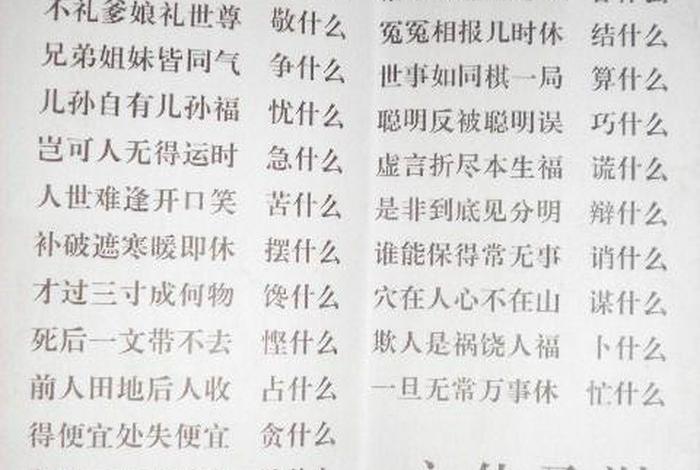 不礼爹娘礼世尊 敬什么
兄弟姐妹皆同气 争什么
儿孙自有儿孙福 忧什么
岂可人无得运时 急什么
人世难逢开口笑 苦什么
补破遮寒暖即休 摆什么
才过三寸成何物 馋什么
死后一文带不去 悭什么
前人田地后人收 占什么
得便宜处失便宜 贪什么
冤冤相报几时休 结什么
世事如同棋一局 算什么
聪明反被聪明误 巧什么
虚言折尽本生福 谎什么
是非到底见分明 辩什么
谁能保得常无事 诮什么
穴在人心不在山 谋什么
欺人是祸饶人福 卜什么
一旦无常万事休 忙什么